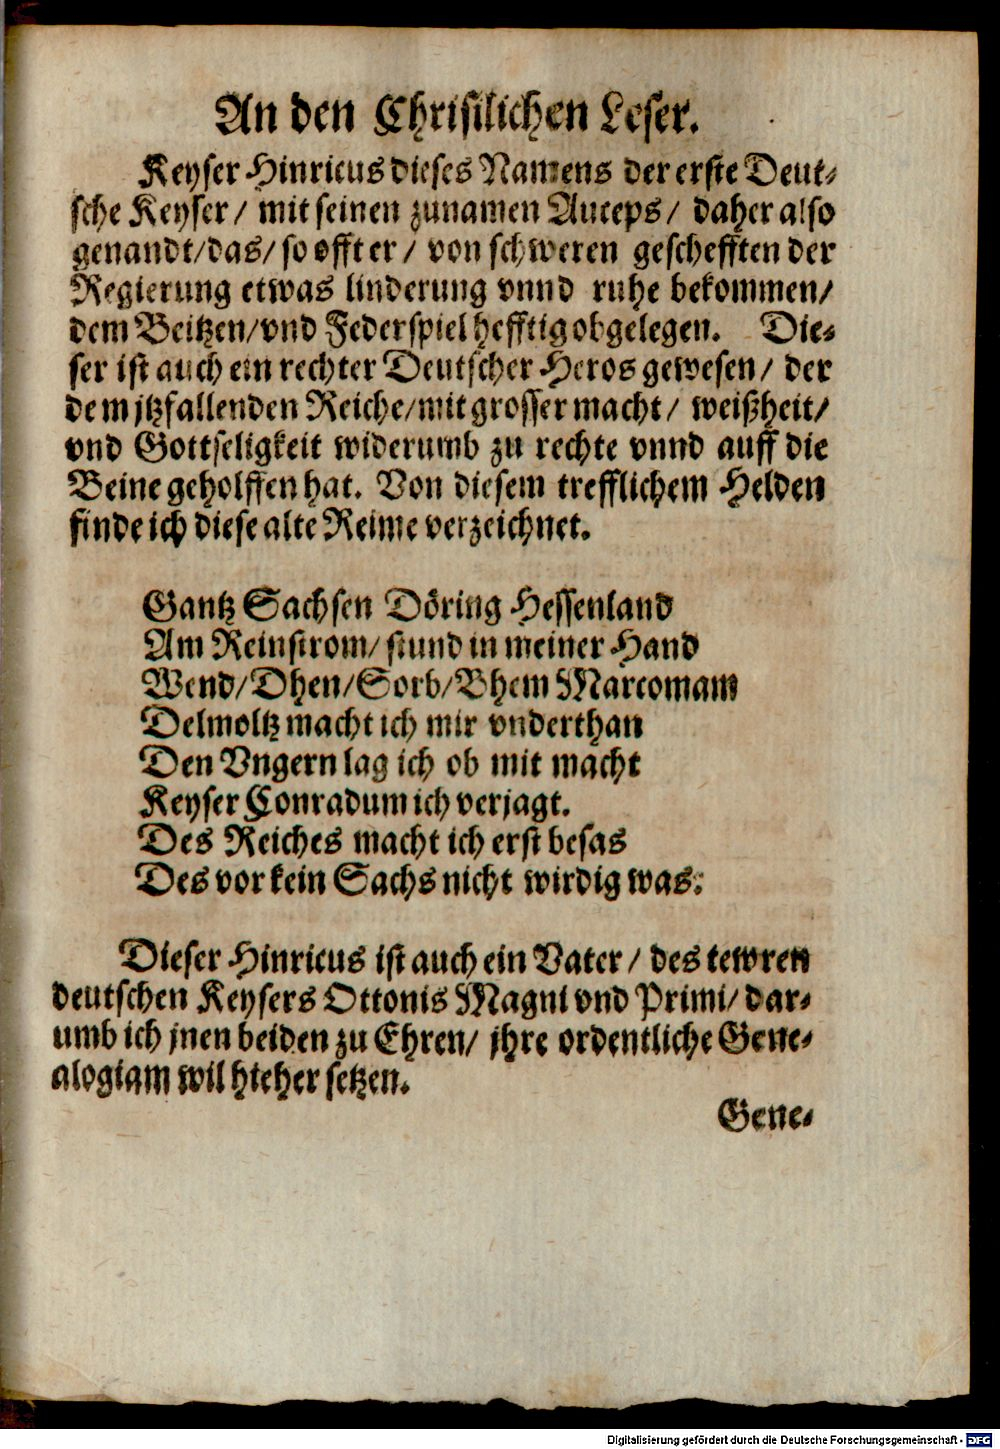 An den Chriſtlichen Leſer.
Keyſer Hinricus dieſes Namens der erſte Deut⸗
ſche Keyſer/ mit ſeinen zunamen Auceps/ daher alſo
genandt/das/ ſo offt er/ von ſchweren geſchefften der
Regierung etwas linderung vnnd ruhe bekommen/
dem Beitzen/vnd Federſpiel hefftig obgelegen. Die⸗
ſer iſt auch ein rechter Deutſcher Heros geweſen/ der
dem jtzfallenden Reiche/mit groſſer macht/ weißheit/
vnd Gottſeligkeit widerumb zu rechte vnnd auff die
Beine geholffen hat. Von dieſem trefflichem Helden
finde ich dieſe alte Reime verzeichnet.
Gantz Sachſen Döring Heſſenland
Am Reinſtrom/ ſtund in meiner Hand
Wend/Dhen/Sorb/Bhem Marcomam
Delmoltz macht ich mir vnderthan
Den Vngern lag ich ob mit macht
Keyſer Conradum ich verjagt.
Des Reiches macht ich erſt beſas
Des vor kein Sachs nicht wirdig was.
Dieſer Hinricus iſt auch ein Vater/ des tewren
deutſchen Keyſers Ottonis Magni vnd Primi/ dar⸗
umb ich jnen beiden zu Ehren/ jhre ordentliche Gene⸗
alogiam wil hieher ſetzen.
Gene⸗
Digitalisierung gefördert durch die Deutsche Forschungsgemeinschaft - DFG